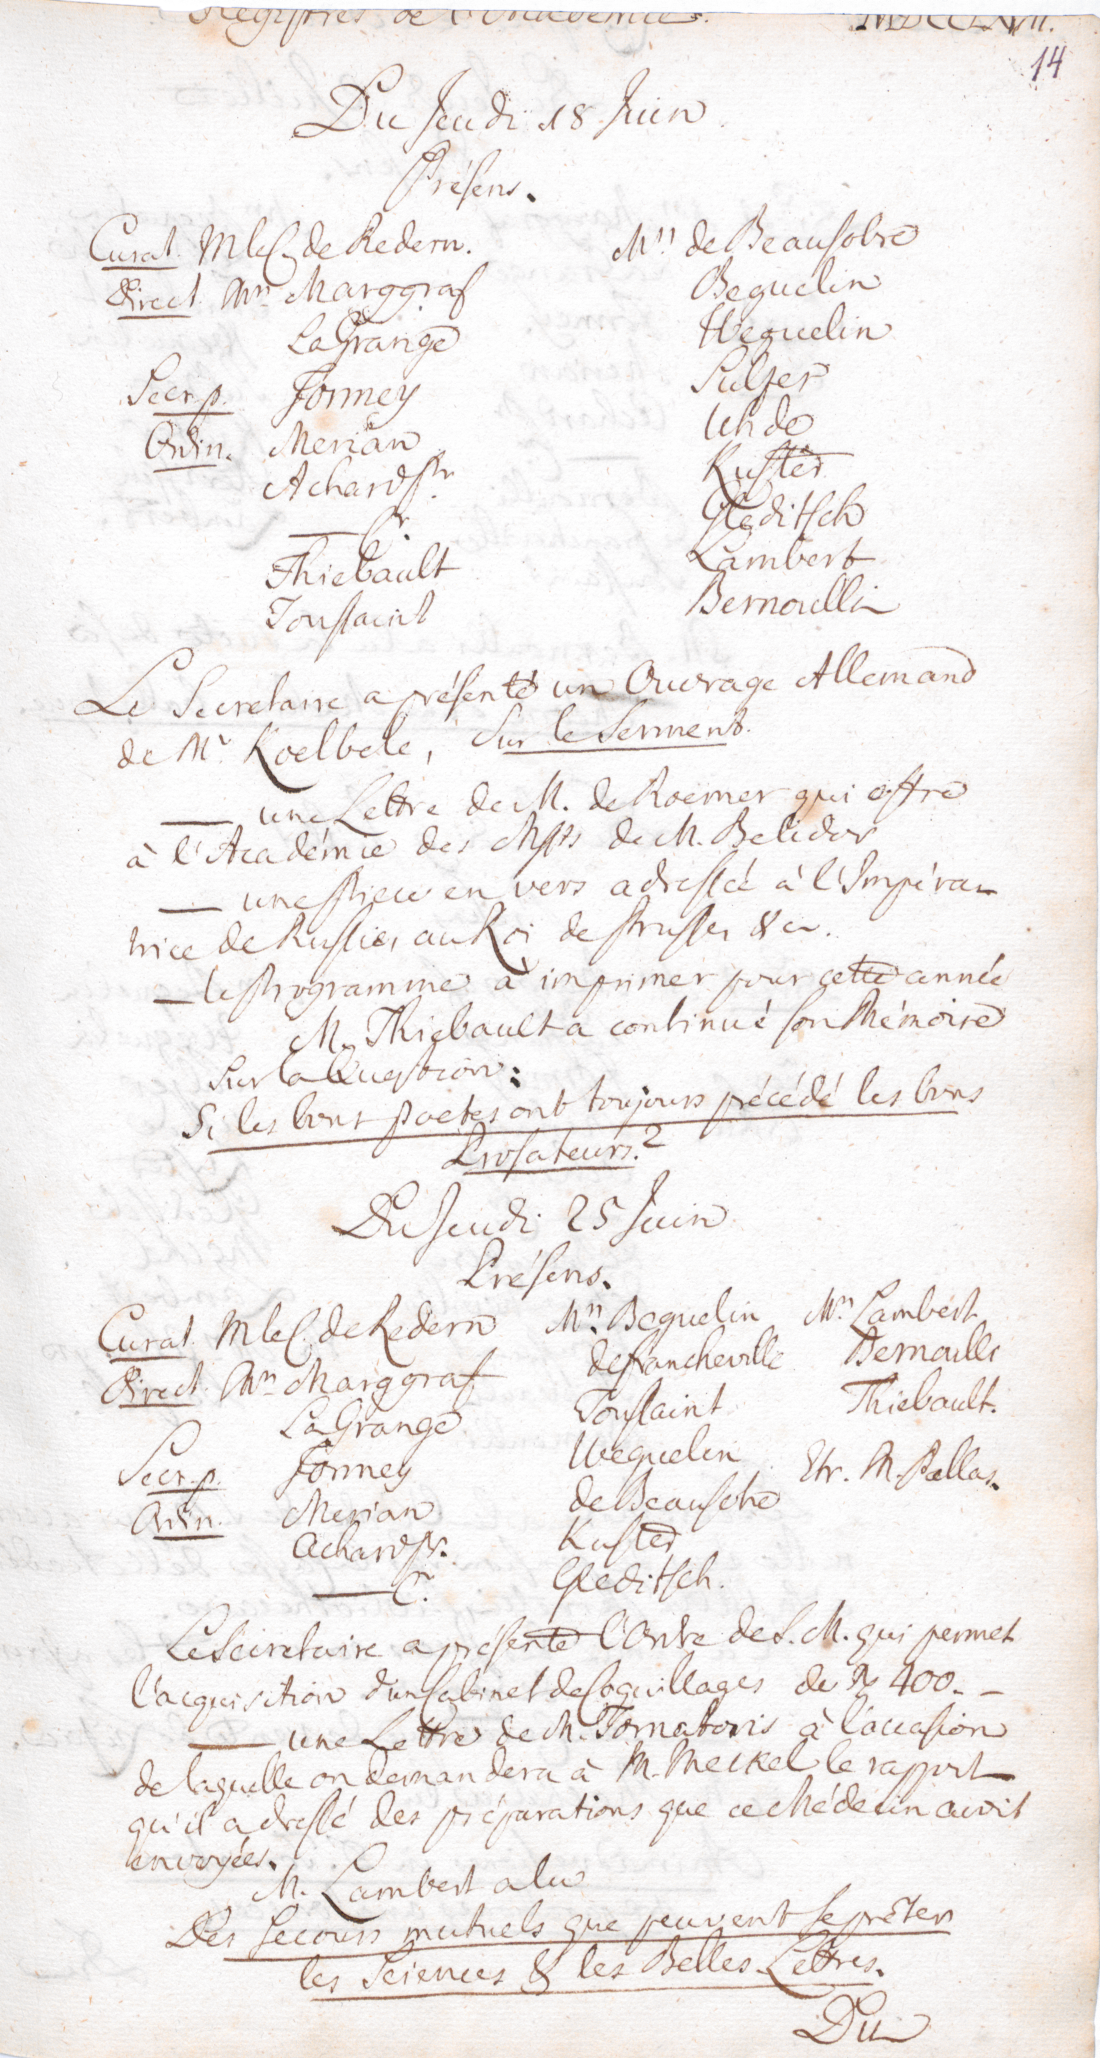 Registres de l'Academie. MDCCLXVII.
14
Du Jeudi 18 Juin
Présens.
Curat. M le C. de Redern.
Direct. Mrs Marggraf
La Grange
Secr. p. Formey
Ordin. Merian
Achard Pr.
— C.
Thiebault
Toussaint
Mrs de Beausobre
Beguelin
Weguelin
Sulzer
Uhde
Kuster
Gleditsch
Lambert
Bernoulli
Le Secretaire a présenté un Ouvrage Allemand
de Mr Koelbele, Sur le Serment.
— une Lettre de M. de Roemer qui offre
à l'Académie des Mssts de M. Belidor
— une Piece en vers adressée à l'Impéra-
trice de Russie, au Roi de Prusse, &c.
— le Programme à imprimer pour cette année
M. Thiebault a continué son Mémoire
Sur la Question:
Si les bons Poetes ont toujours précédé les bons
Prosateurs?
Du Jeudi 25 Juin
Présens.
Curat. M le C. de Redern
Direct. Mrs Marggraf
La Grange
Secr. p. Formey
Ordin. Merian
Achard Pr.
— C.
Mrs Beguelin
de Francheville
Toussaint
Weguelin
de Beausobre
Kuster
Gleditsch.
Mrs Lambert
Bernoulli
Thiebault.
Etr. M. Pallas.
Le Secretaire a présenté l'Ordre de S. M. qui permet
l'acquisition d'un Cabinet de Coquillages de 400. —
— une Lettre de M. Tornatoris à l'occasion
de laquelle on demandera à M. Meckel le rapport
qu'il a dressé des préparations que ce Médecin avoit
envoyées.
M. Lambert a lu
Des Secours mutuels que peuvent se prêter
les Sciences & les Belles-Lettres.
Du